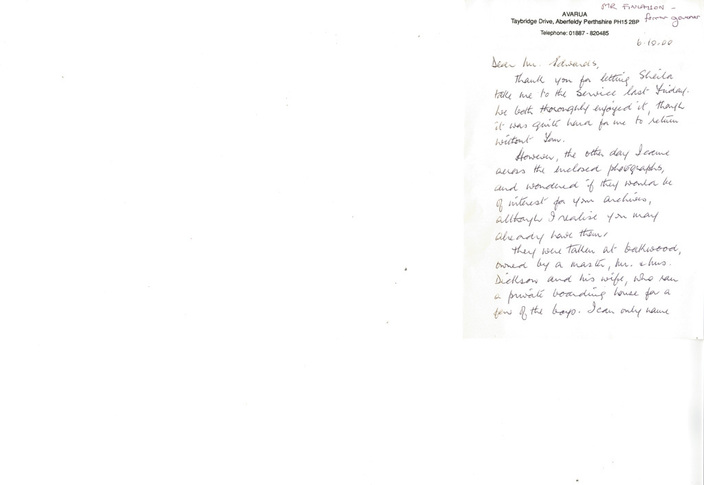 MR FINLAYSON -
former governor
AVARUA
Taybridge Drive, Aberfeldy Perthshire PH15 2BP
Telephone: 01887 - 820485
6.10.00
Dear Mr. Edwards,
Thank you for letting Sheila
take me to the Service last Friday.
We both thoroughly enjoyed it, though
it was quite hard for me to return
without Tom.
However, the other day I came
across the enclosed photographs,
and wondered if they would be
of interest for your archives,
although I realise you may
already have them.
They were taken at Oakwood,
owned by a master, Mr. & Mrs.
Dickson and his wife, who ran
a private boarding house for a
few of the boys. I can only name